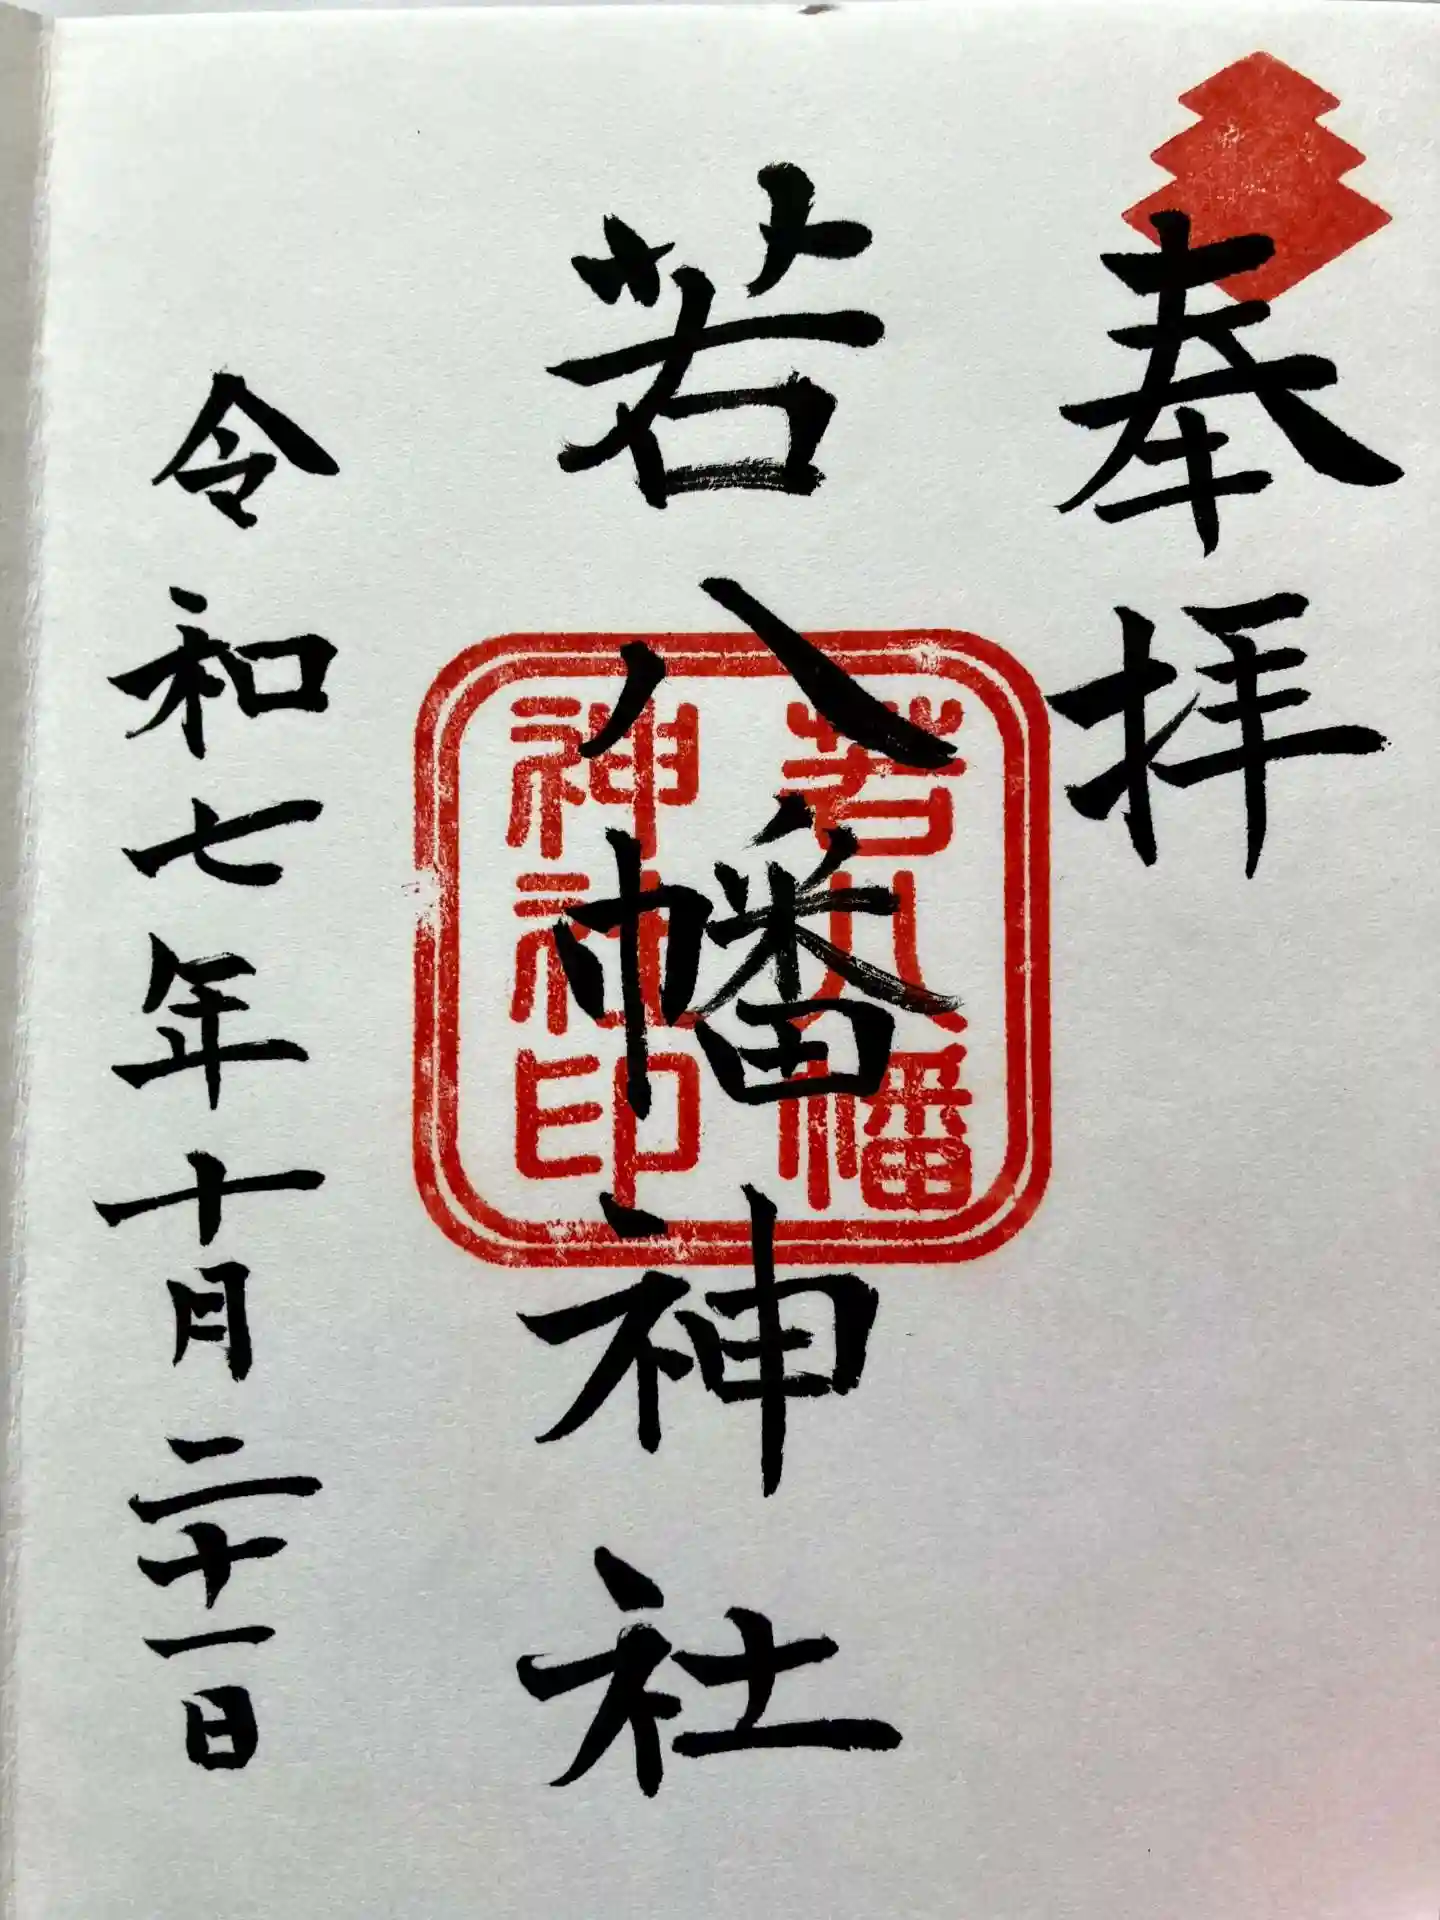 奉拝
若八幡神社
若八幡
神社印
令和七年十月二十一日